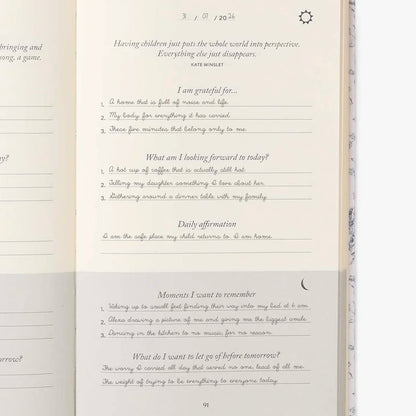 31 / 07 / 2026
Having children just puts the whole world into perspective.
Everything else just disappears.
KATE WINSLET
bringing and
song, a game.
I am grateful for...
1. A home that is full of noise and life.
2. My body for everything it has carried.
3. These five minutes that belong only to me.
ay?
What am I looking forward to today?
1. A hot cup of coffee that is actually still hot.
2. Telling my daughter something I love about her.
3. Gathering around a dinner table with my family.
Daily affirmation
I am the safe place my child returns to. I am home.
Moments I want to remember
1. Waking up to small feet finding their way into my bed at 6 am.
2. Alexa drawing a picture of me and giving me the biggest smile.
3. Dancing in the kitchen to no music, for no reason.
orrow?
What do I want to let go of before tomorrow?
The worry I carried all day that served no one, least of all me.
The weight of trying to be everything to everyone today.
91